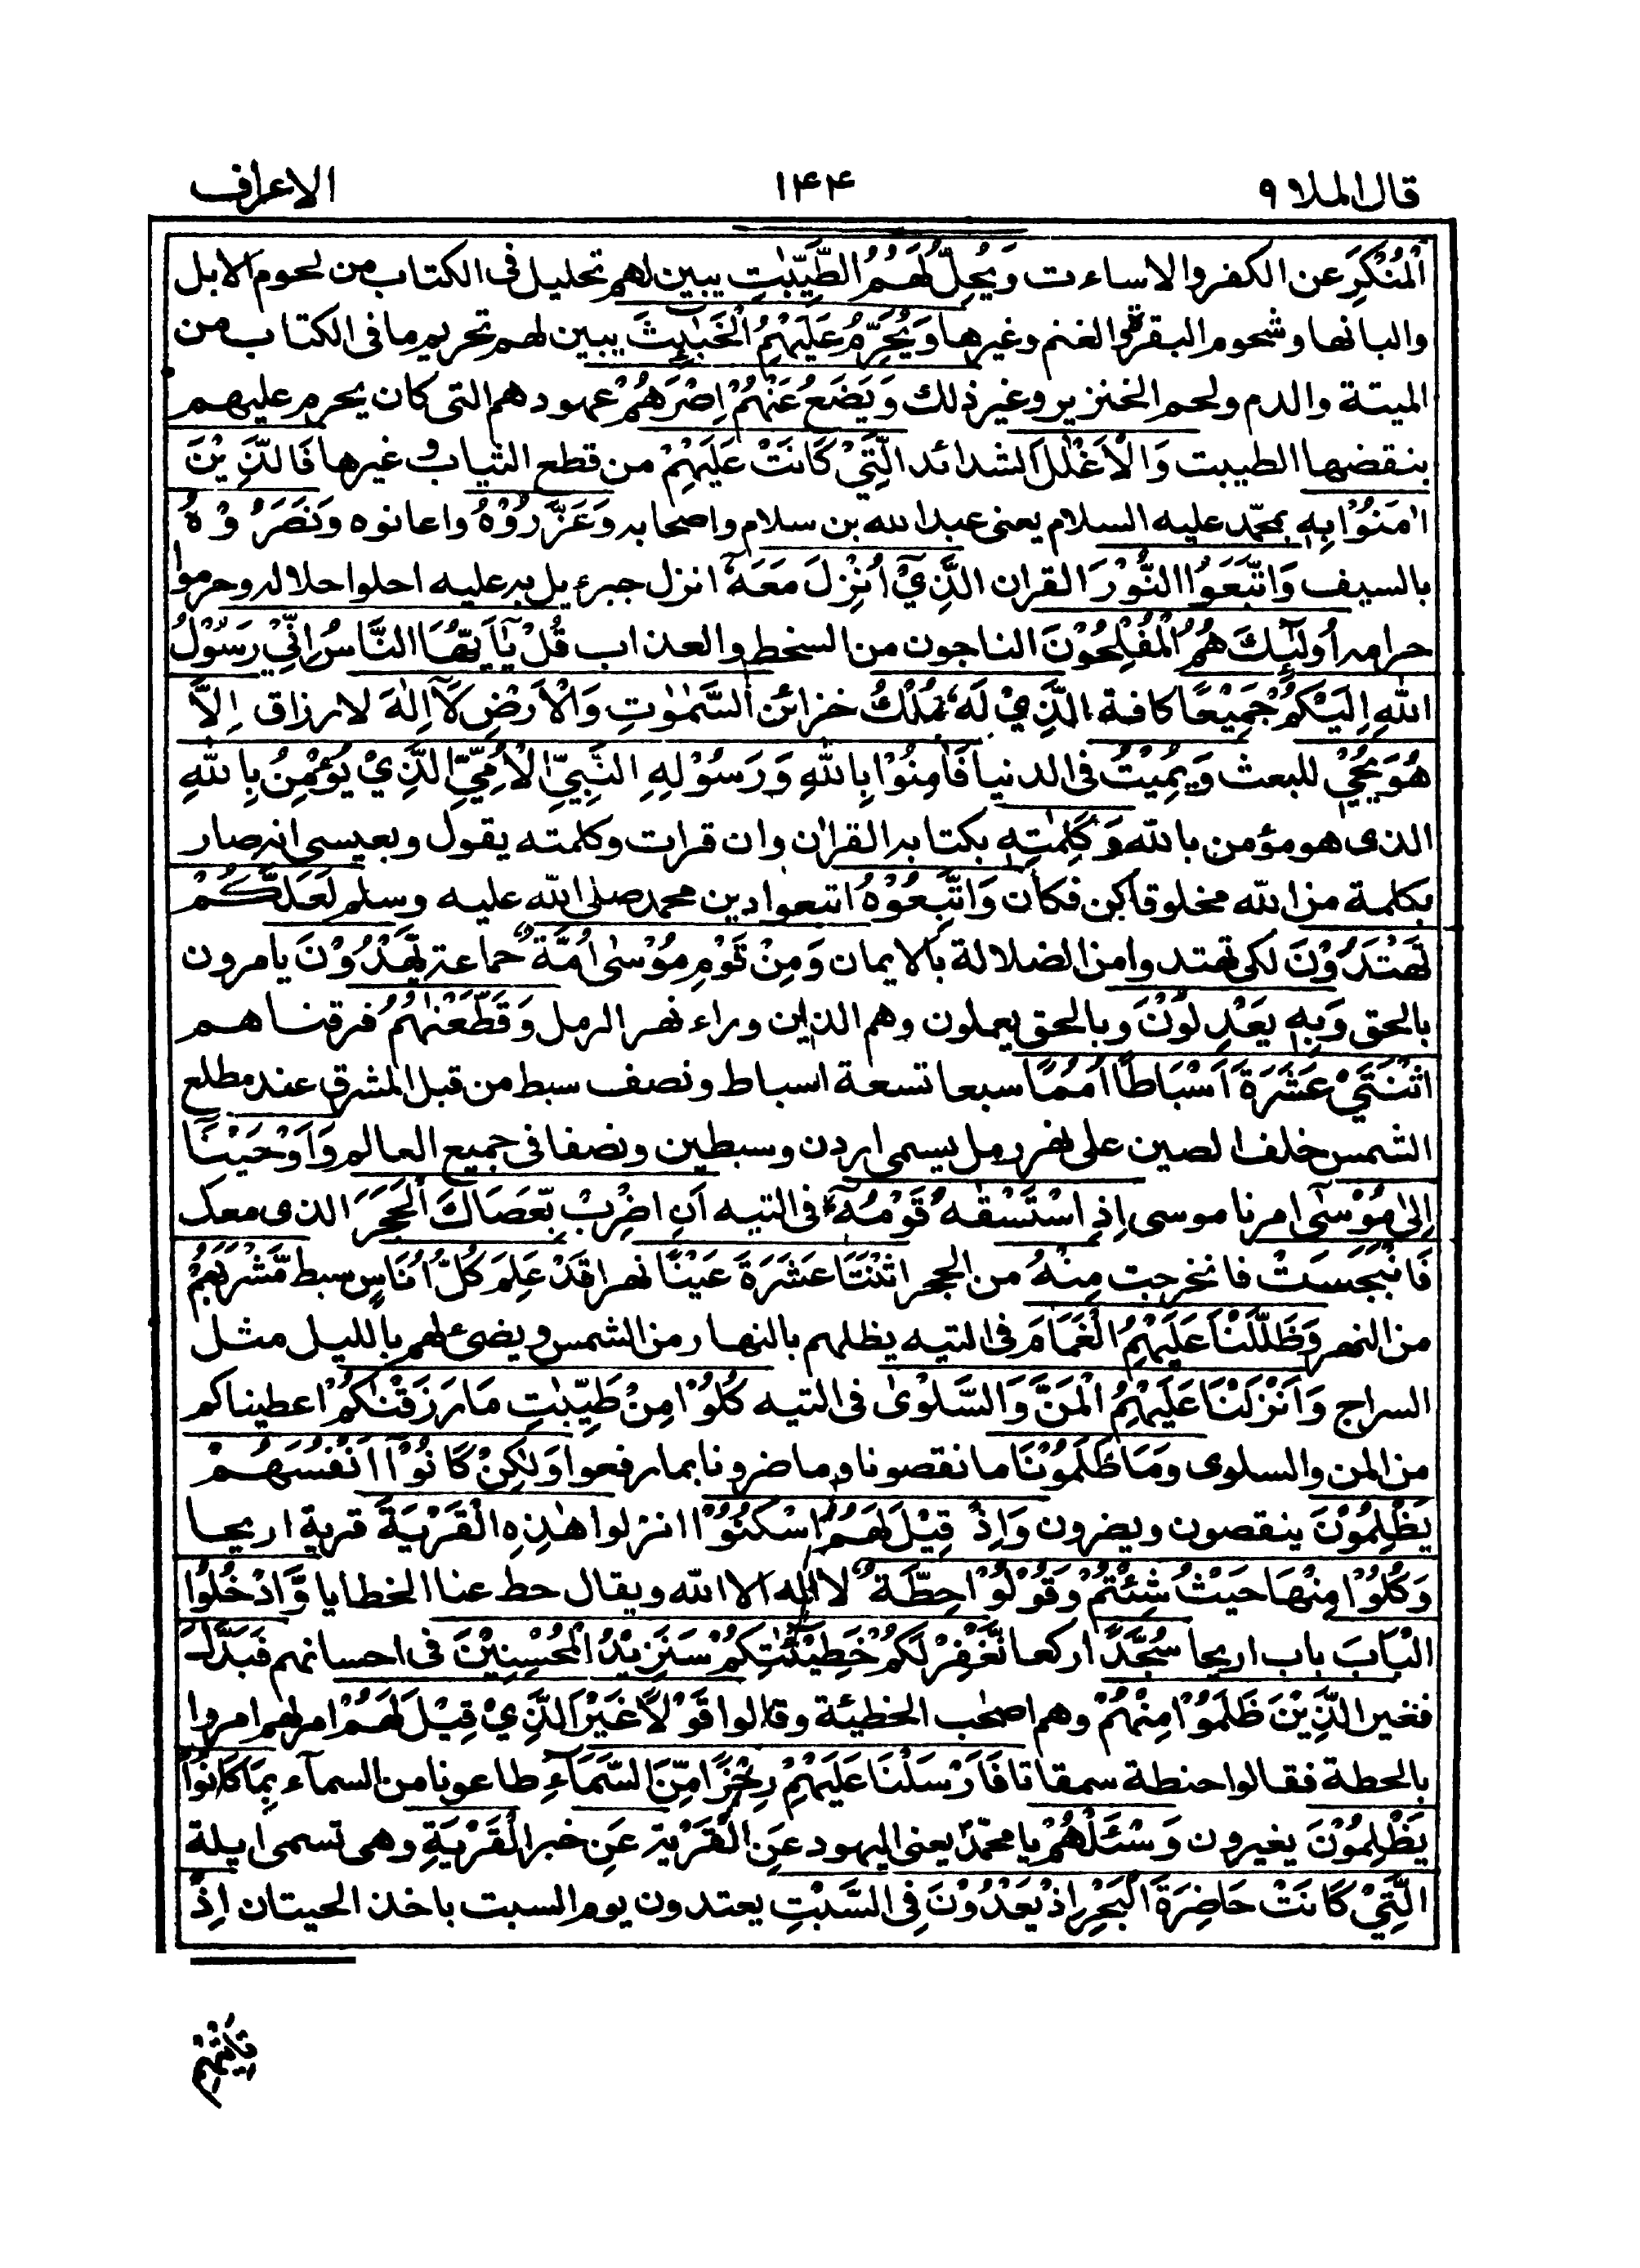 قال الملا ٩ ١٤٤ الاعراف
الْمُنْكَرِ عن الكفر والاساءت وَيُحِلُّ لَهُمُ الطَّيِّبٰتِ يبين لهم تحليل فى الكتاب من لحوم الابل
والبانها وشحوم البقر والغنم وغيرها وَيُحَرِّمُ عَلَيْهِمُ الْخَبٰٓئِثَ يبين لهم تحريم ما فى الكتاب من
الميتة والدم ولحم الخنزير وغير ذلك وَيَضَعُ عَنْهُمْ اِصْرَهُمْ عهودهم التى كان يحرم عليهم
بنقضها الطيبت وَالْاَغْلٰلَ الشدائد الَّتِيْ كَانَتْ عَلَيْهِمْ من قطع الثياب وغيرها فَالَّذِيْنَ
اٰمَنُوْا بِهٖ بمحمّد عليه السلام يعنى عبد الله بن سلام واصحابه وَعَزَّرُوْهُ واعانوه وَنَصَرُوْهُ
بالسيف وَاتَّبَعُوا النُّوْرَ القران الَّذِيْٓ اُنْزِلَ مَعَهٗٓ انزل جبرءيل به عليه احلوا حلاله وحرموا
حرامه اُولٰٓئِكَ هُمُ الْمُفْلِحُوْنَ الناجون من السخط والعذاب قُلْ يٰٓاَيُّهَا النَّاسُ اِنِّيْ رَسُوْلُ
اللّٰهِ اِلَيْكُمْ جَمِيْعًا كافة الَّذِيْ لَهٗ مُلْكُ خزائن السَّمٰوٰتِ وَالْاَرْضِ لَآ اِلٰهَ لا رزاق اِلَّا
هُوَ يُحْيٖ للبعث وَيُمِيْتُ فى الدنيا فَاٰمِنُوْا بِاللّٰهِ وَرَسُوْلِهِ النَّبِيِّ الْاُمِّيِّ الَّذِيْ يُؤْمِنُ بِاللّٰهِ
الذى هو مؤمن بالله وَكَلِمٰتِهٖ بكتابه القران وان قرات وكلمته يقول وبعيسى انه صار
بكلمة من الله مخلوقا كن فكان وَاتَّبِعُوْهُ اتبعوا دين محمد صلى الله عليه وسلم لَعَلَّكُمْ
تَهْتَدُوْنَ لكى تهتدوا من الضلالة بالايمان وَمِنْ قَوْمِ مُوْسٰٓى اُمَّةٌ جماعة يَّهْدُوْنَ يامرون
بالحق وَبِهٖ يَعْدِلُوْنَ وبالحق يعملون وهم الذين وراء نهر الرمل وَقَطَّعْنٰهُمُ فرقناهم
اثْنَتَيْ عَشْرَةَ اَسْبَاطًا اُمَمًا سبعا تسعة اسباط ونصف سبط من قبل المشرق عند مطلع
الشمس خلف الصين على نهر رمل يسمى اردن وسبطين ونصفا فى جميع العالم وَاَوْحَيْنَآ
اِلٰى مُوْسٰٓى امرنا موسى اِذِ اسْتَسْقٰىهُ قَوْمُهٗٓ فى التيه اَنِ اضْرِبْ بِّعَصَاكَ الْحَجَرَ الذى معك
فَانْبَجَسَتْ فانخرجت مِنْهُ من الحجر اثْنَتَا عَشْرَةَ عَيْنًا نهرا قَدْ عَلِمَ كُلُّ اُنَاسٍ سبط مَّشْرَبَهُمْ
من النهر وَظَلَّلْنَا عَلَيْهِمُ الْغَمَامَ فى التيه يظلهم بالنهار من الشمس ويضئ لهم بالليل مثل
السراج وَاَنْزَلْنَا عَلَيْهِمُ الْمَنَّ وَالسَّلْوٰى فى التيه كُلُوْا مِنْ طَيِّبٰتِ مَا رَزَقْنٰكُمْ اعطيناكم
من المن والسلوى وَمَا ظَلَمُوْنَا ما نقصونا وما ضرونا بما رفعوا وَلٰكِنْ كَانُوْٓا اَنْفُسَهُمْ
يَظْلِمُوْنَ ينقصون ويضرون وَاِذْ قِيْلَ لَهُمُ اسْكُنُوْا انزلوا هٰذِهِ الْقَرْيَةَ قرية اريحا
وَكُلُوْا مِنْهَا حَيْثُ شِئْتُمْ وَقُوْلُوْا حِطَّةٌ لا اله الا الله ويقال حط عنا الخطايا وَّادْخُلُوا
الْبَابَ باب اريحا سُجَّدًا اركعا نَّغْفِرْ لَكُمْ خَطِيْٓئٰتِكُمْ سَنَزِيْدُ الْمُحْسِنِيْنَ فى احسانهم فَبَدَّلَ
فغير الَّذِيْنَ ظَلَمُوْا مِنْهُمْ وهم اصحٰب الخطيئة وقالوا قَوْلًا غَيْرَ الَّذِيْ قِيْلَ لَهُمْ امر لهم امروا
بالحطة فقالوا حنطة سمقاتا فَاَرْسَلْنَا عَلَيْهِمْ رِجْزًا مِّنَ السَّمَآءِ طاعونا من السمآء بِمَا كَانُوْا
يَظْلِمُوْنَ يغيرون وَسْئَلْهُمْ يا محمّد يعنى اليهود عَنِ الْقَرْيَةِ عَن خبر الْقَرْيَةِ وهى تسمى ايلة
الَّتِيْ كَانَتْ حَاضِرَةَ الْبَحْرِ اِذْ يَعْدُوْنَ فِى السَّبْتِ يعتدون يوم السبت باخذ الحيتان اِذْ
تَاْتِيْهِمْ